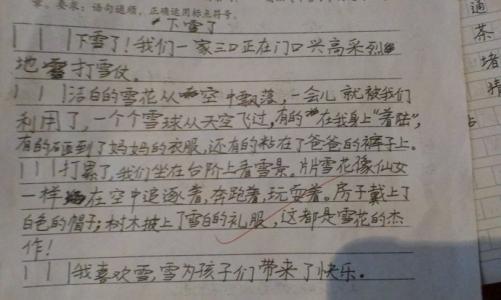 求。要求：语句通顺，正确运用标点符号。
下雪了
下雪了！我们一家三口正在门口兴高采烈
地打雪仗。
洁白的雪花从空中飘落，一会儿就被我们
利用了，一个个雪球从天空飞过，有的在我身上“着陆”，
有的砸到了妈妈的衣服，还有的粘在了爸爸的裤子上。
打累了，我们坐在台阶上看雪景。片片雪花像仙女
一样在空中追逐着，奔跑着，玩耍着。房子戴上了
白色的帽子；树木披上了雪白的礼服，这都是雪花的杰
作！
我喜欢雪，雪为孩子们带来了快乐。
通
茶
堵
情